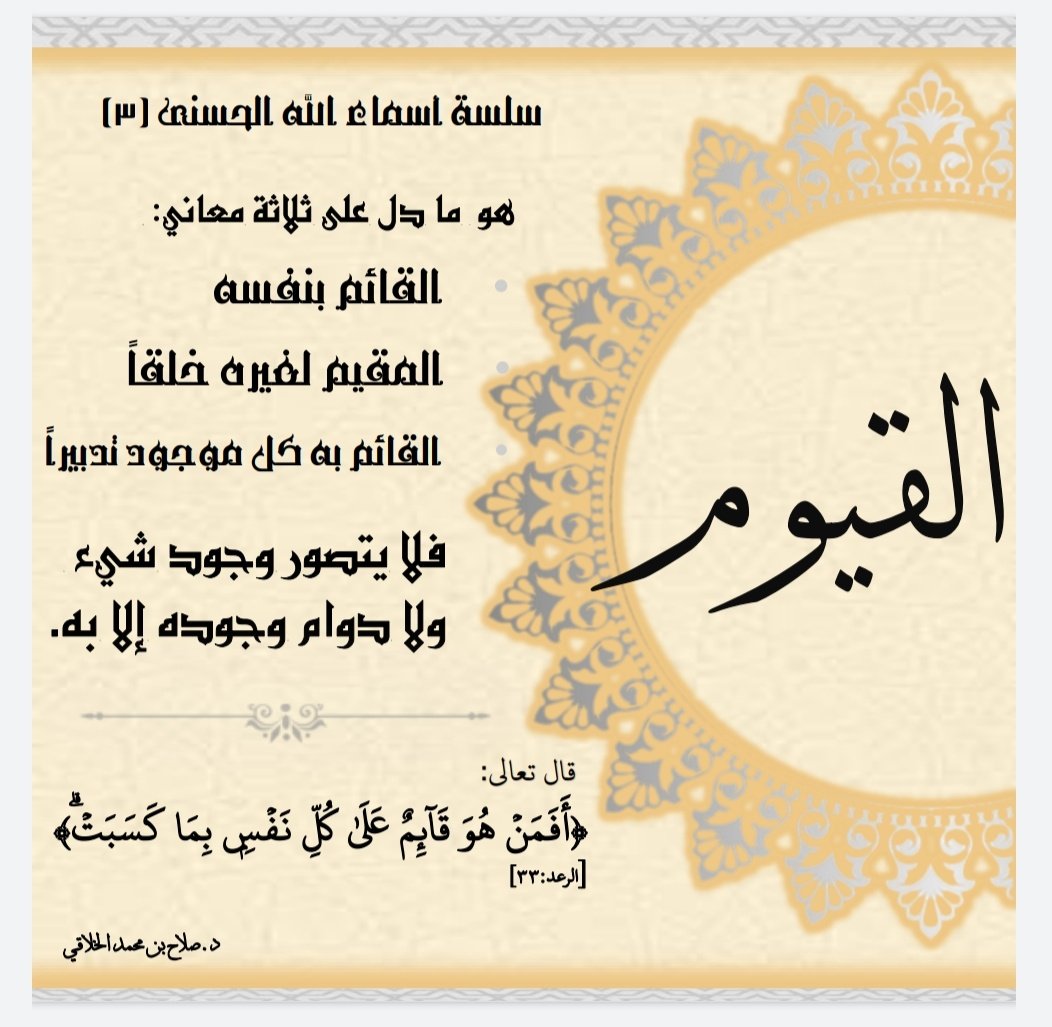 سلسة اسماء الله الحسنى (٣)
هو ما دل على ثلاثة معاني:
القائم بنفسه
المقيم لغيره خلقاً
القائم به كل موجود تدبيراً
فلا يتصور وجود شيء
ولا دوام وجوده إلا به.
القيوم
قال تعالى:
﴿أَفَمَنۡ هُوَ قَآئِمٌ عَلَىٰ كُلِّ نَفۡسِۭ بِمَا كَسَبَتۡۗ﴾
[الرعد:٣٣]
د.صلاح بن محمد الخلاقي